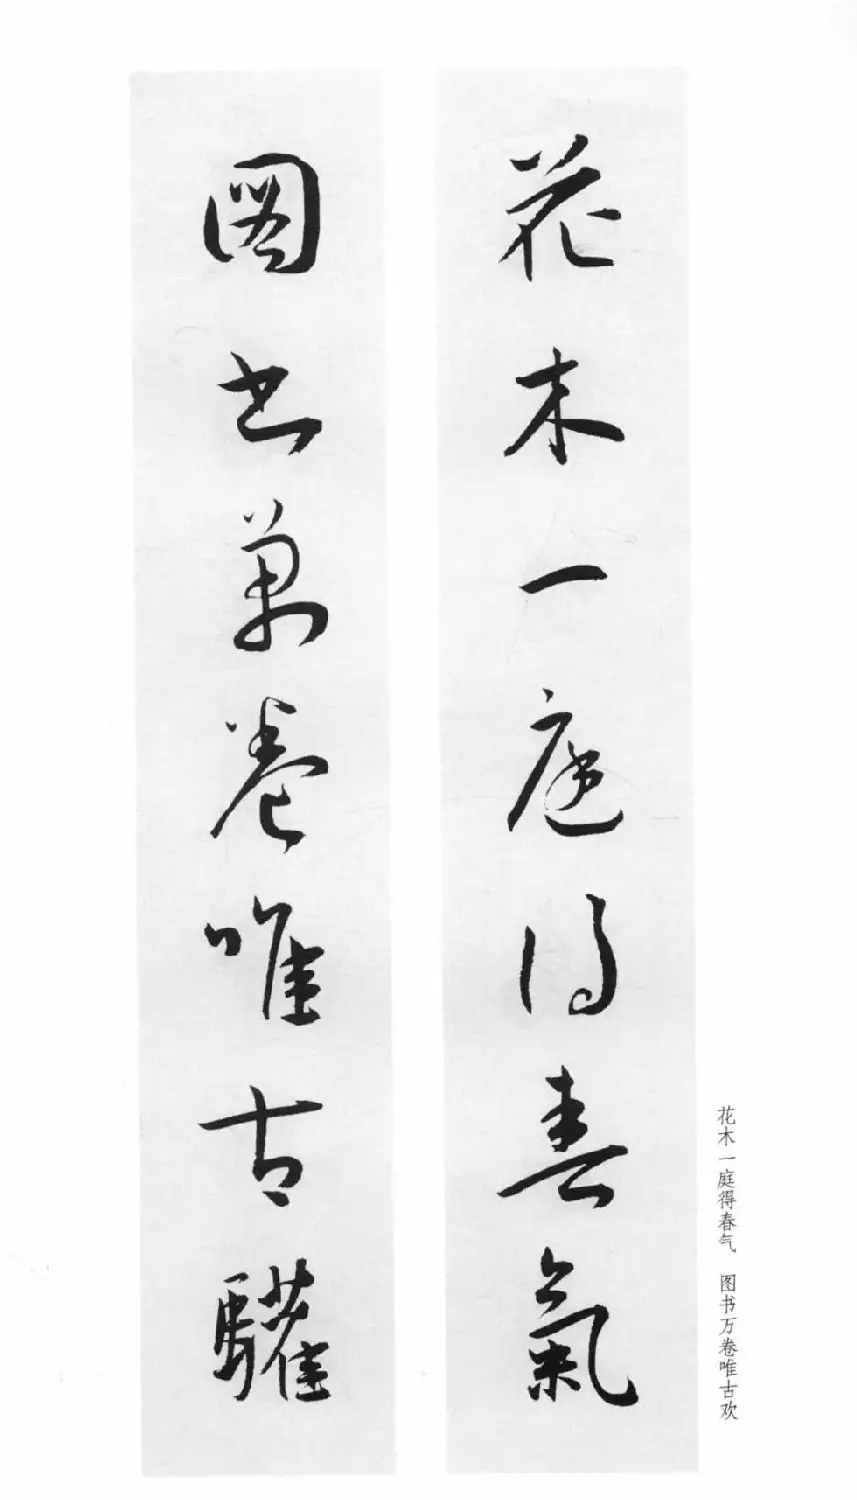 花木一庭得春氣
圖书萬卷唯古驩
花木一庭得春气　图书万卷唯古欢